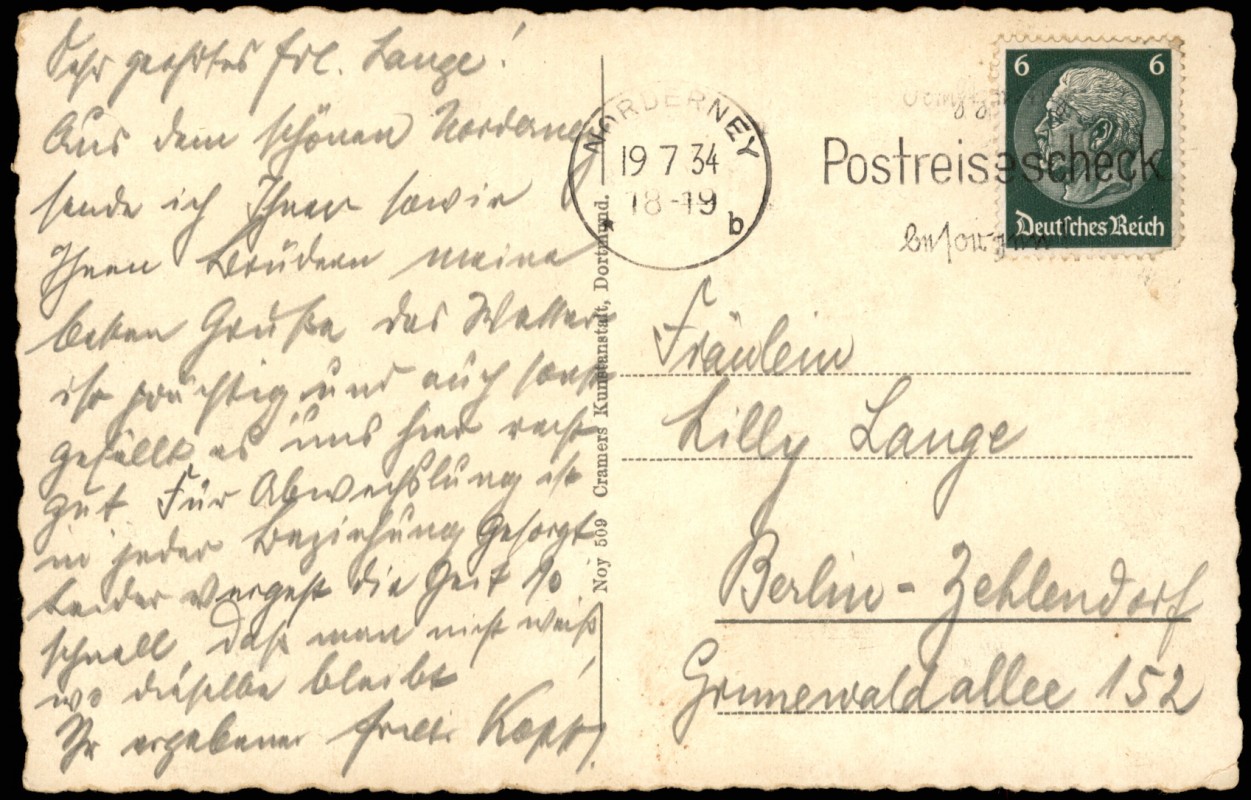 Sehr geehrtes Frl. Lange!
Aus dem schönen Norderney
sende ich Ihnen sowie
Ihren Brüdern meine
besten Grüße das Wetter
ist prächtig und auch sonst
gefällt es uns hier recht
gut Für Abwechslung ist
in jeder Beziehung Gesorgt
Leider vergeht die Zeit so
schnell, daß man nicht weiß
wo dieselbe bleibt
Ihr ergebener Kopp
Noy 509 Cramers Kunstanstalt, Dortmund.
NORDERNEY
19 7 34
18-19
* b
Postreisescheck
besorgen
6 6
Deutsches Reich
Fräulein
Lilly Lange
Berlin-Zehlendorf
Grunewaldallee 152